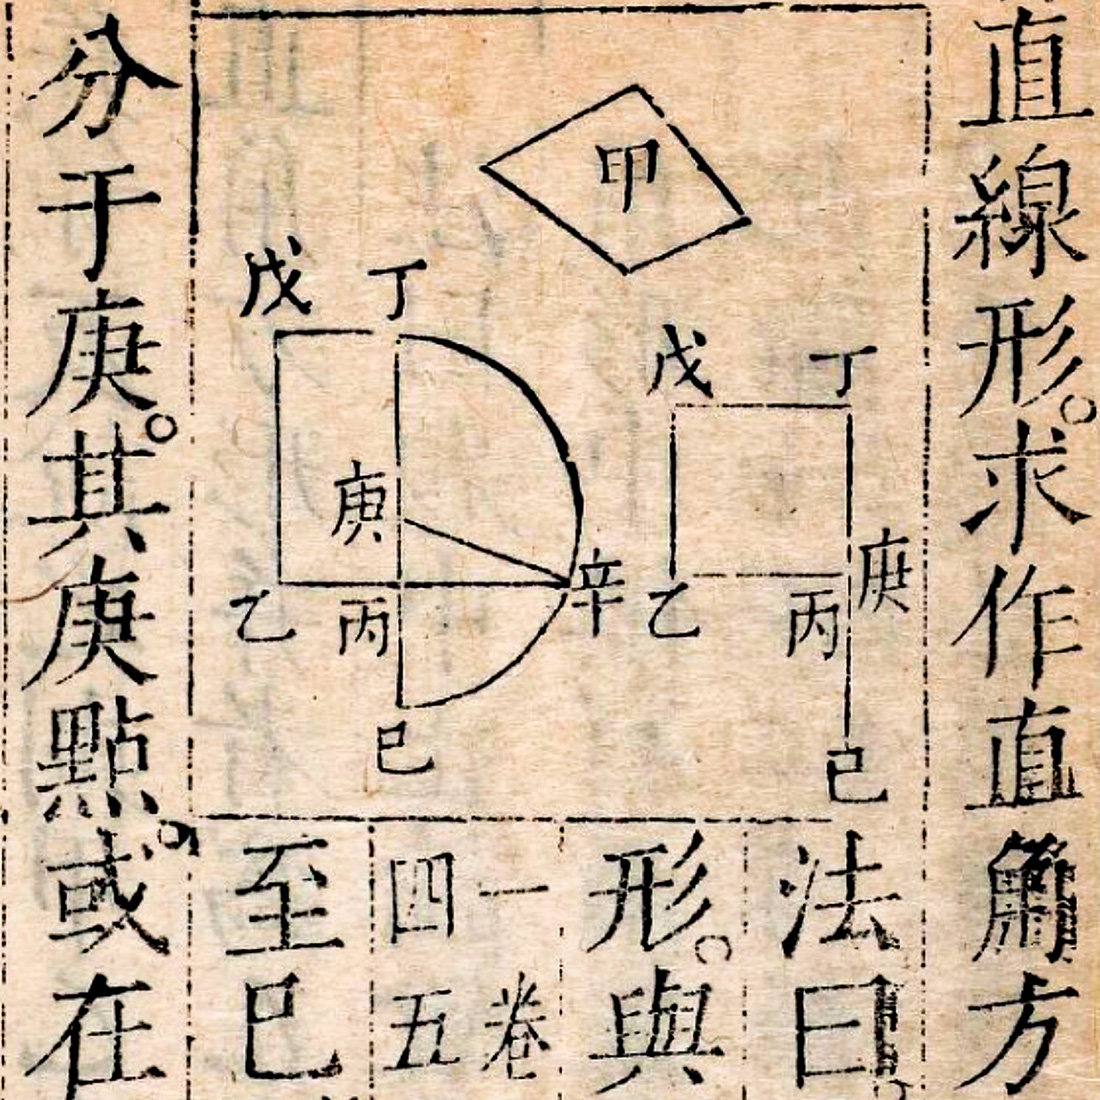 直線形。求作直角方
甲
戊 丁
庚
乙 丙
己
戊 丁
庚
辛
乙 丙
巳
法曰
形。與
一卷
四五
至巳
分于庚。其庚點。或在